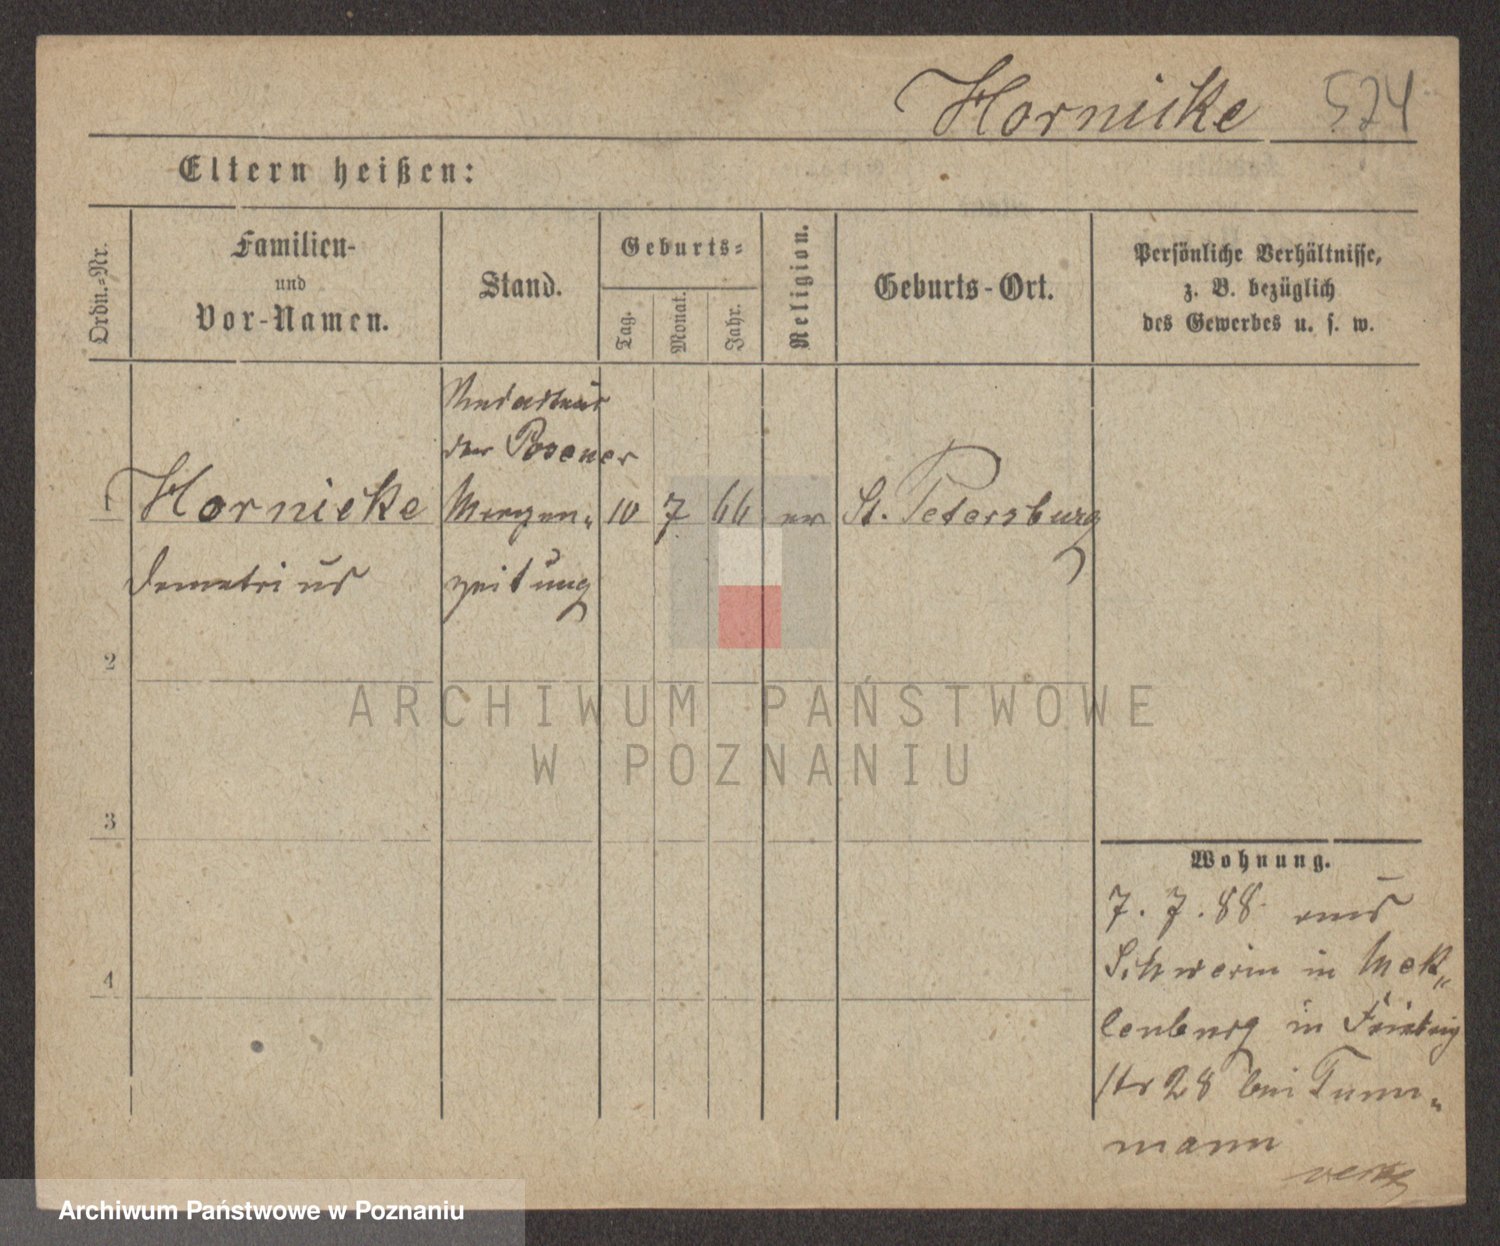 Hornicke 574
Eltern heißen:
Ordn.-Nr.
Familien-
und
Vor-Namen.
Stand.
Geburts-
Tag.
Monat.
Jahr.
Religion.
Geburts-Ort.
Persönliche Verhältnisse,
z. B. bezüglich
des Gewerbes u. s. w.
1 Hornicke
Demetrius
Redakteur
der Posener
Morgen-
zeitung
10 7 66 ev St. Petersburg
2
3
4
Wohnung.
7. 7. 88 aus
Schwerin in Mek„
lenburg in
Str 28 bei Tumm-
mann
verz
ARCHIWUM PAŃSTWOWE
W POZNANIU
Archiwum Państwowe w Poznaniu